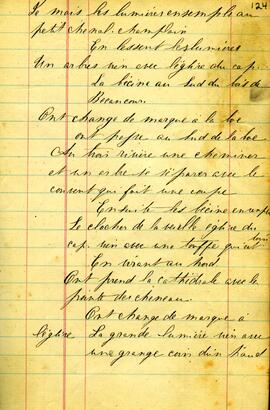 124
Le mais les lumière ensemple au
petit chenal champlain
En lessent les lumières
Un arbres vien avec l'église du cap
La bécine au sud du bois de
Bécancour
Ont change de marque à la boe
ont passe au sud de la boe
Au trois rivière une cheminer
et un arbre se séparer avec le
couvent qui fait une coupe
Ensuite les bécine ensemple
Le clocher de la vieille eglise du
cap vien avec une touffe qui est
En virant au nord
Ont prend la cathédrale avec le
pante des cheneau
Ont change de marque à
l'église La grande lumière vien avec
une grange coin d'un